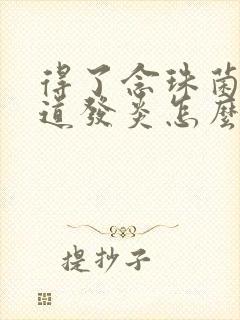 得了念珠菌
道發炎怎麼
提抄子